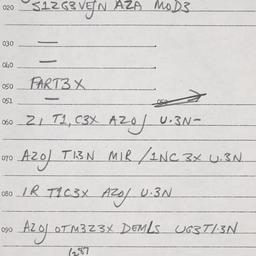 020 S1ZG3VEJN AZA MOD3
030
040
050 PART3X
051
060 Z1 T1,C3X AZOJ U.3N-
070 AZOJ T13N M1R /1NC3X U.3N
080 1R T1C3X AZOJ U.3N
090 AZOJ OTM3Z3X DEMLS UG3T1.3N